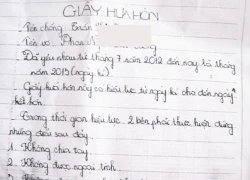 GIẤY HỨA HÔN
- Tên chồng: Trần
- Tên vợ: Phan
- Đã yêu nhau từ tháng 7 năm 2012 đến nay là tháng
năm 2013 (ngày kí)
- Giấy hứa hôn này có hiệu lực từ ngày kí cho đến ngày
kết hôn.
- Trong thời gian hiệu lực 2 bên phải thực hiện đúng
những điều sau đây.
1. Không chia tay
2. Không được ngoại tình